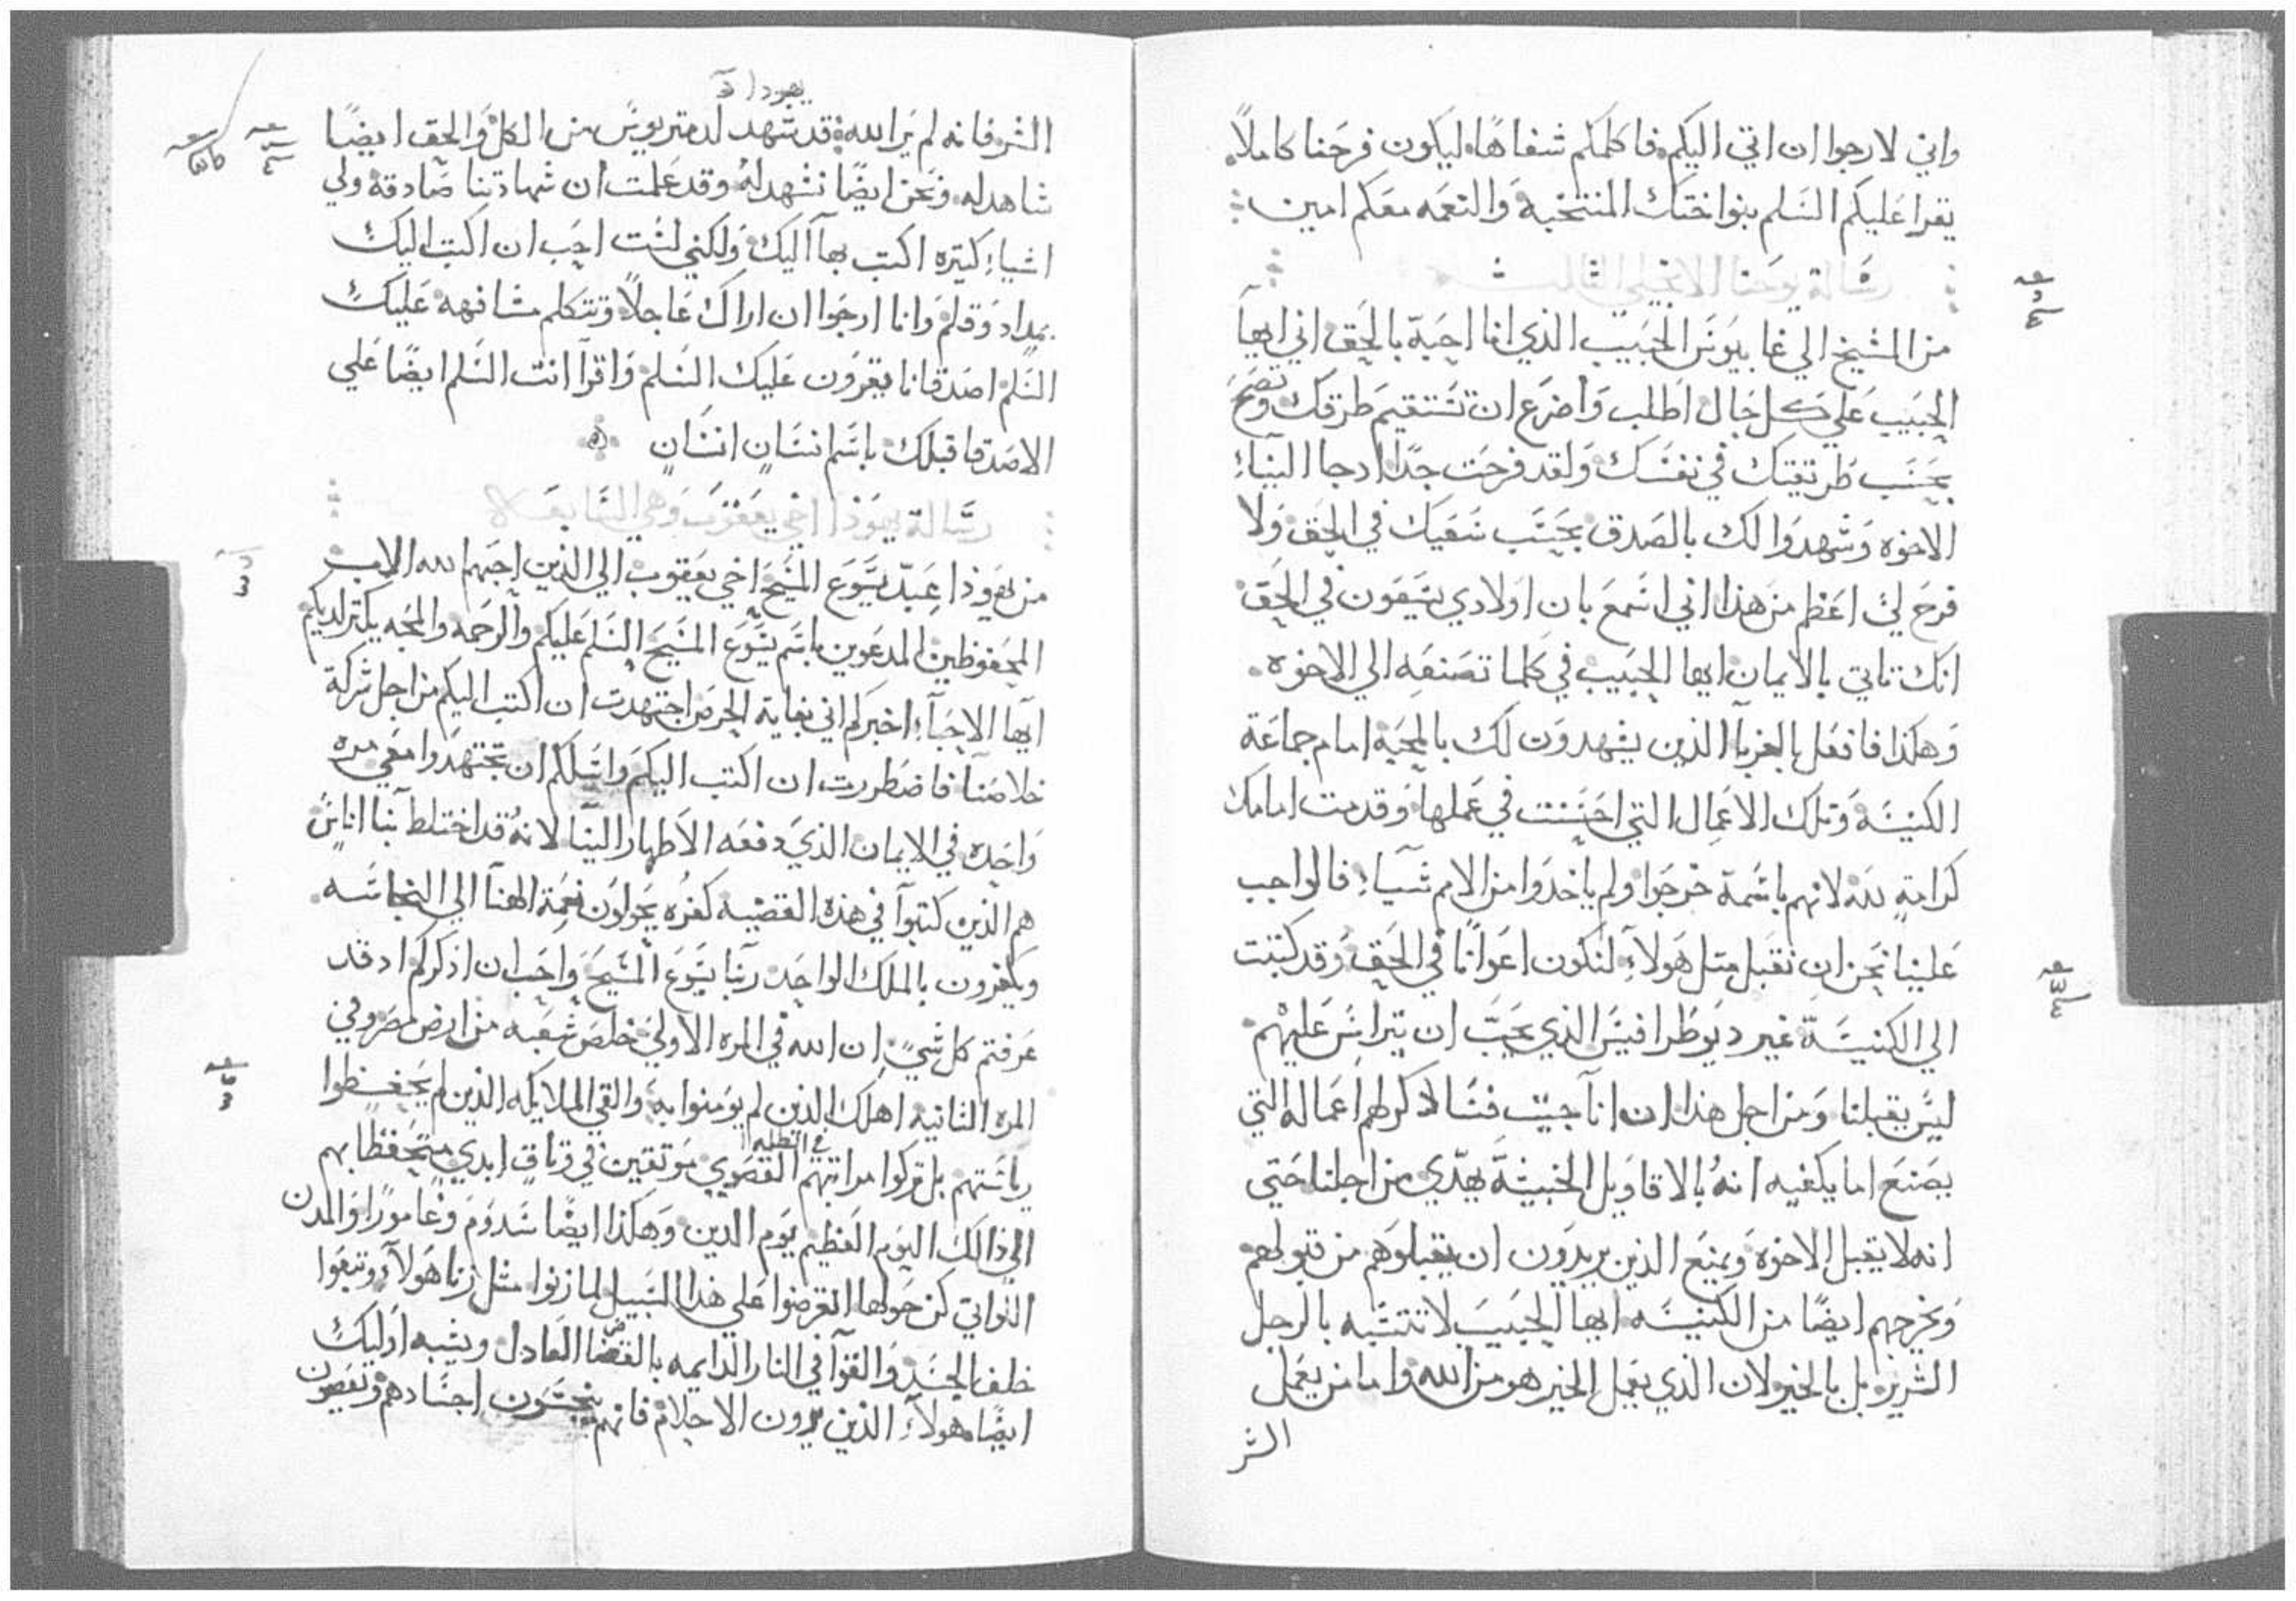 واني لارجوا ان اتي اليكم فاكلمكم شفاهًا ليكون فرحنا كاملاً
يقرا عليكم السلم بنوا ختك المنتخبة والنعمه معكم امين
رسالة يوحنا الانجيلي الثالث
من الشيخ الي غايوس الحبيب الذي انا احبة بالحق اني ايها
الحبيب علي كل حال اطلب واضرع ان تستقيم طرقك وتصح
بحسب طريقتك في نفسك ولقد فرحت جدًا ادجا الينا
الاخوه وشهدوا لك بالصدق بحسب سعيك في الحق ولا
فرح لي اعظم من هذا اني اسمع بان اولادي يسعون في الحق
انك تاتي بالايمان ايها الحبيب في كلما تصنعه الي الاخوه
وهكذا فافعل بالغربا الذين يشهدون لك بالمحبه امام جماعة
الكنيسة وتلك الاعمال التي احسنت في عملها وقدمت امامك
كرامة لله لانهم باسمة خرجوا ولم ياخدوا من الامم شياء فالواجب
علينا نحن ان نقبل متل هولاء لنكون اعوانًا في الحق وقد كتبت
الي الكنيسة غير ديوطرافيس الذي يحب ان يتراس عليهم
ليس يقبلنا ومن اجل هذا ان انا جيت فسادكر لهم اعماله التي
يصنع اما يكفيه انه بالاقاويل الخبيثة يهدي من اجلنا حتي
انه لا يقبل الاخوة ويمنع الذين يريدون ان يقبلوهم من قبولهم
ونخرجهم ايضًا من الكنيسه ايها الحبيب لا تتشبه بالرجل
الشرير بل بالخير لان الذي يعمل الخير هو من الله واما من يعمل
الشر
يهودا
الشر فانه لم ير الله قد شهد لدمتريوس من الكل والحق ايضًا
شاهد له ونحن ايضًا نشهد له وقد علمت ان شهادتنا صادقة ولي
اشياء كتيره اكتب بها اليك ولكني لست احب ان اكتب اليك
بمداد وقلم وانا ارجوا ان اراك عاجلاً ونتكلم مشافهه عليك
السلم اصدقانا يقرون عليك السلم واقرا انت السلم ايضًا علي
الاصدقا قبلك باسم انسان انسان
رسالة يهوذا اخي يعقوب وهي السابعة
من يهوذا عبد يسوع المسيح اخي يعقوب الي الذين احبهم الله الاب
المحفوظين المدعوين باسم يسوع المسيح السلم عليكم والرحمه والمحبه يكتر لديكم
ايها الاحباء اخبركم اني بغاية الحرص اجتهدت ان اكتب اليكم من اجل شركة
خلاصنا فاضطررت ان اكتب اليكم واسلكم ان تجتهدوا معي مره
واحده في الايمان الذي دفعه الاطهار الينا لانه قد اختلط بنا اناس
هم الذين كتبوا في هذه القضيه كفره يحولون نعمة الهنا الي النجاسه
ويكفرون بالملك الواحد ربنا يسوع المسيح واحب ان اذكركم اد قد
عرفتم كل شي ان الله في المره الاولي خلص شعبه من ارض مصر وفي
المره الثانيه اهلك الذين لم يومنوا به والقي الملايكه الذين لم يحفظوا
رياستهم بل تركوا مراتبهم في الظلمه القصوي موتقين في وثاق ابدي متحفظا بهم
الي ذالك اليوم العظيم يوم الدين وهكذا ايضًا سدوم وغامورا والمدن
اللواتي كن حولها انقرضوا علي هذا السبيل لما زنوا متل زنا هولاء وتبعوا
خلف الجسد والقوا في النار الدايمه بالقضا العادل ويشبه اوليك
ايضًا هولاء الذين يرون الاحلام فانهم ينجسون اجسادهم ويعصون